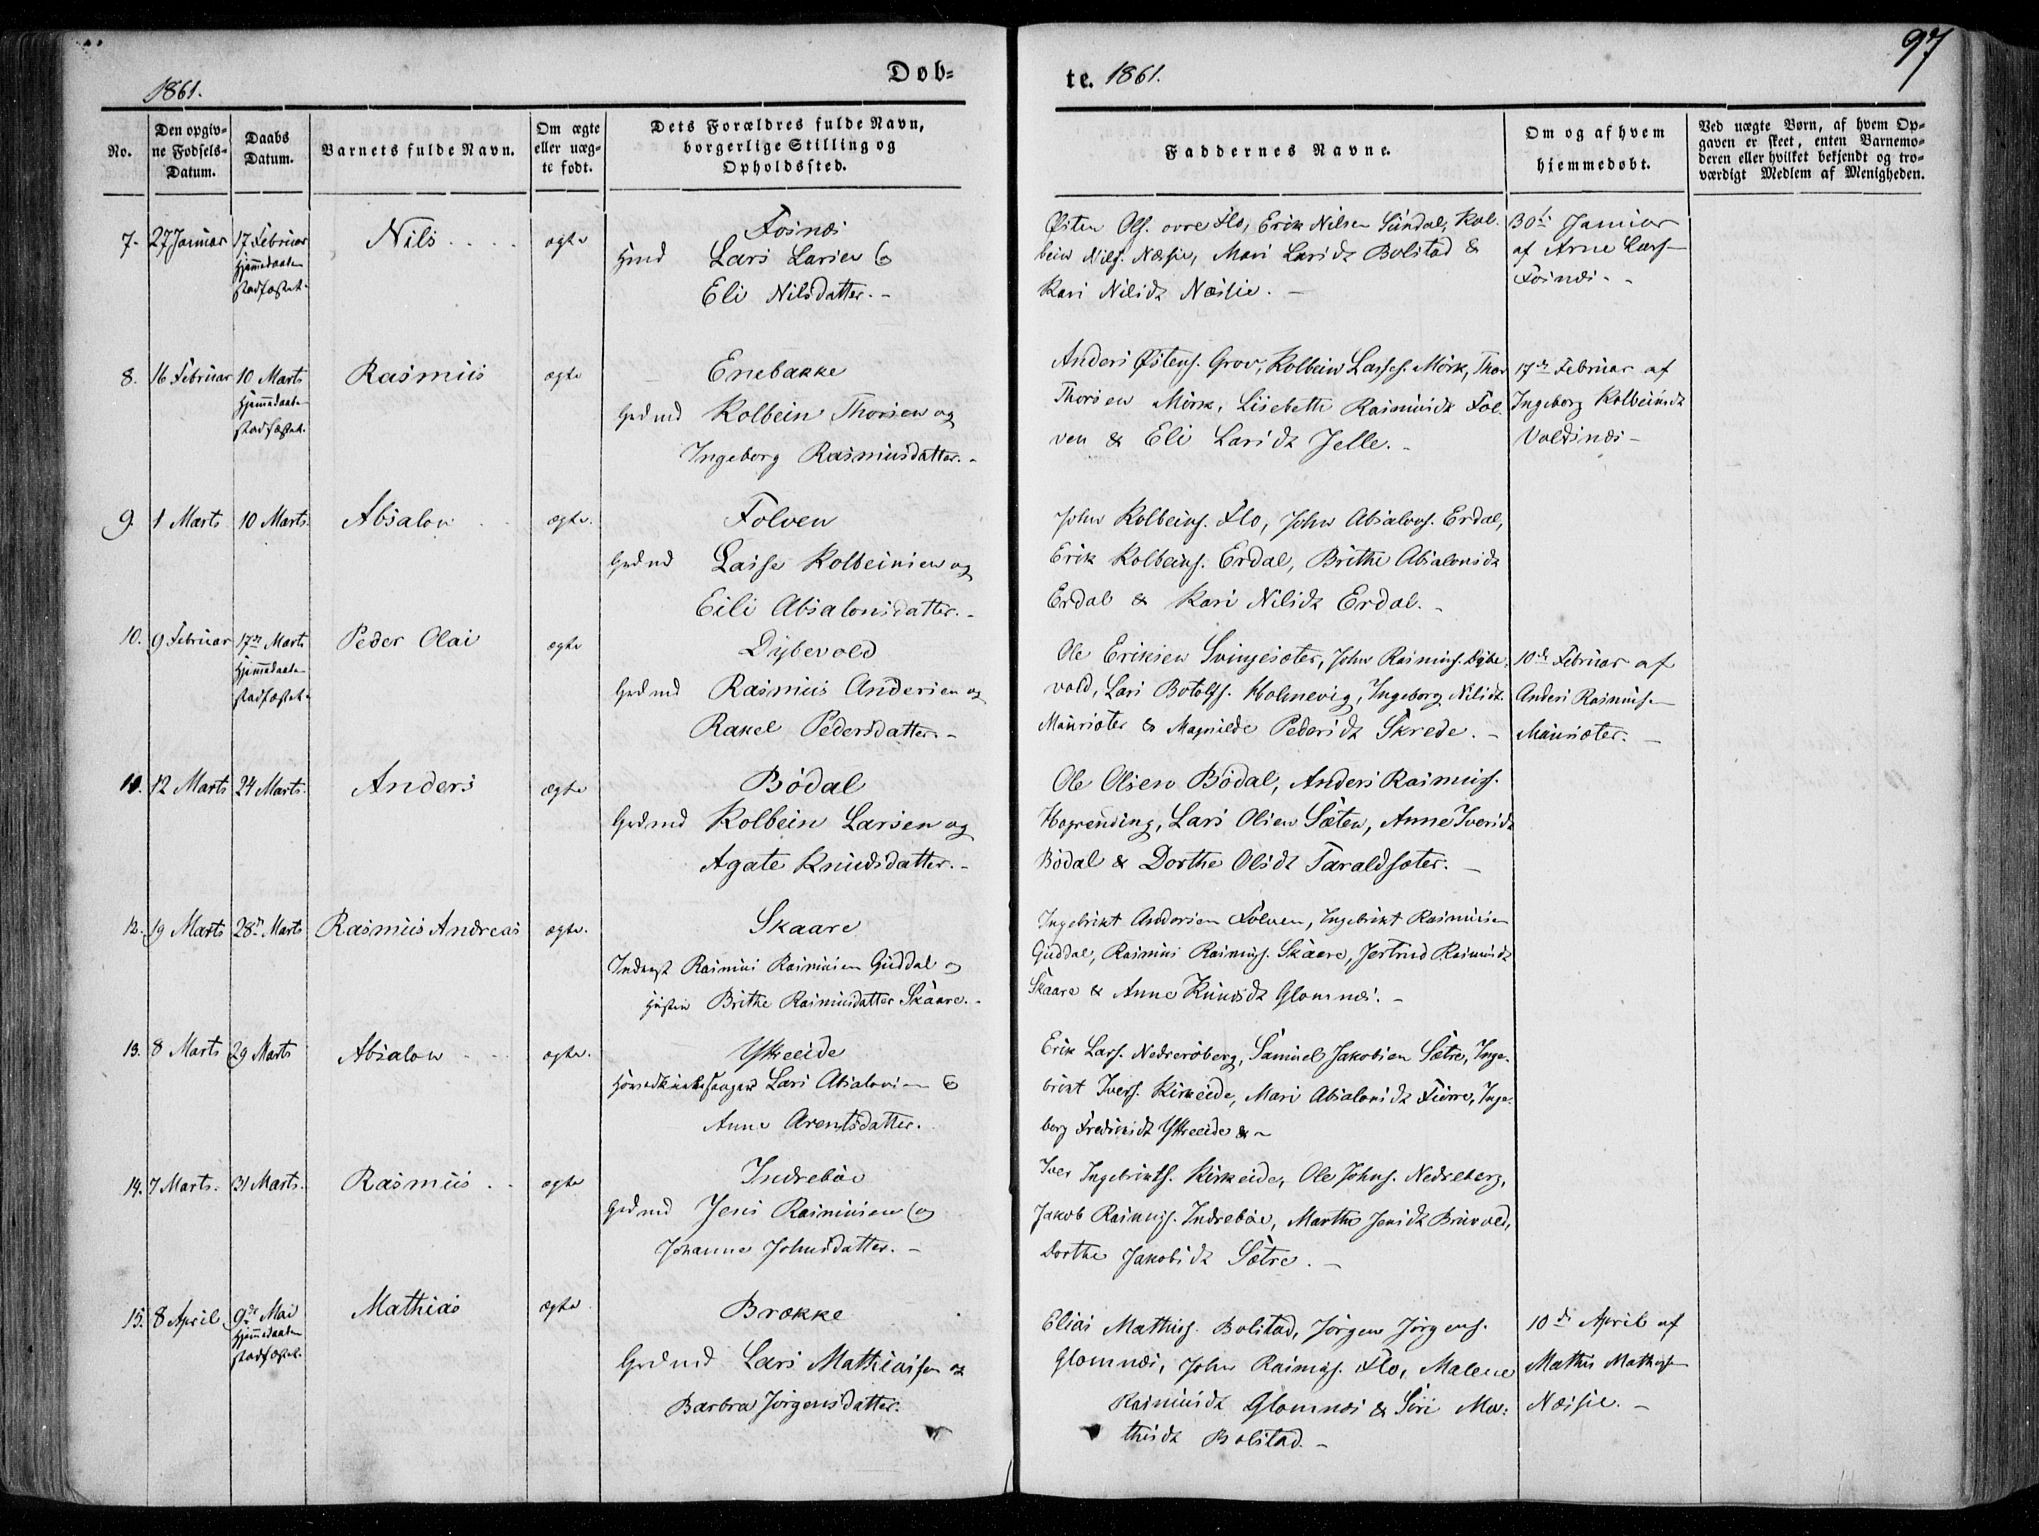 97
1861. Døb=
te. 1861.
No.
Den opgiv=
ne Fødsels=
Datum.
Daabs
Datum.
Barnets fulde Navn.
Om ægte
eller uæg=
te født.
Dets Forældres fulde Navn,
borgerlige Stilling og
Opholdssted.
Faddernes Navne.
Om og af hvem
hjemmedøbt.
Ved uægte Børn, af hvem Op=
gaven er skeet, enten Barnemo=
deren eller hvilket bekjendt og tro=
værdigt Medlem af Menigheden.
7. 27 Januar 17 Februar Nils ægte Fosnæs
Hjemmedaaben
stadfæstet.
Hmd Lars Larsen &
Eli Nilsdatter.-
Østen Ols. øvre Flo, Erik Nilsen Sundal, Kol-
bein Nils. Næsje, Mari Larsdt Bolstad &
Kari Nilsdt Næsje. -
30te Januar
af Arne Lars-
Fosnæs.-
8. 16 Februar 10 Marts Rasmus ægte Enebakke
Hjemmedaaben
stadfæstet.
Grdmd Kolbein Thorsen og
Ingeborg Rasmusdatter.-
Anders Østens. Grov, Kolbein Lasses. Mørk, Thor
Thorsen Mørk, Lisebeth Rasmusdt Fol-
ven & Eli Larsdt Jelle.-
17de Februar af
Ingeborg Kolbeinsdt
Voldsnæs-
9. 1 Marts 10 Marts. Absalon ægte. Folven
Grdmd Lasse Kolbeinsen og
Eili Absalonsdatter.-
John Kolbeins. Flo, John Absalons. Erdal,
Erik Kolbeins. Erdal, Brithe Absalonsdt
Erdal & Kari Nilsdt Erdal.-
10. 9 Februar 17de Marts Peder Olai ægte Dybevold
Hjemmedaaben
stadfæstet.
Grdmd Rasmus Andersen og
Rakel Pedersdatter.-
Ole Eriksen Svingesæter, John Rasmus. Dybe-
vold, Lars Botolfs. Holmevig, Ingeborg Nilsdt.
Maursæter & Magnilde Pedersdt Skrede. -
10de Februar af
Anders Rasmus-
Maursæter. -
11. 12 Marts 24 Marts. Anders ægte Bødal
Grdmd Kolbein Larsen og
Agate Knudsdatter.-
Ole Olsen Bødal, Anders Rasmus.
Hogrending, Lars Olsen Sæten, Anne Iversdt
Bødal & Dorthe Olsdt Taraldsæter. -
12. 19 Marts 28de Marts Rasmus Andreas ægte. Skaare
Inderst Rasmus Rasmusen Guddal og
Hustru Brithe Rasmusdatter Skaare.-
Ingebrikt Andersen Folven, Ingebrikt Rasmusen
Guddal, Rasmus Rasmus. Skaare, Jertrud Rasmusdt
Skaare & Anne Knudsdt Glomnæs. -
13. 8 Marts 29 Marts Absalon ægte. Ytreeide
Hovedkirkesanger Lars Absalonsen &
Anne Arentsdatter.
Erik Lars. Nedrerøberg, Samuel Jakobsen Sætre, Inge-
brikt Ivers. Kirkeide, Mari Absalonsdt Fiørre, Inge-
borg Fredriksdt Ytreeide & -
14. 7 Marts. 31 Marts. Rasmus ægte Indrebøe
Grdmd Jens Rasmusen og
Johanne Johnsdatter. -
Iver Ingebrikts. Kirkeide, Ole Johns. Nedreberg,
Jakob Rasmus. Indrebøe, Marthe Jensdt Bruvold,
Dorthe Jakobsdt Sætre. -
15. 8 April 9de Mai Mathias ægte. Brække
Hjemmedaaben
stadfæstet.
Grdmd Lars Mathiassen og
Barbra Jørgensdatter.
Elias Mathias. Bolstad, Jørgen Jørgens.
Glomnæs, John Rasmus. Flo, Malene
Rasmusdt Glomnæs & Siri Ma-
thisdt Bolstad. -
10de April af
Mathis Mathis-
Næsje. -